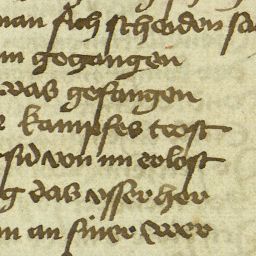 man sich scheiden sa
im gegangen
was gefangen
kampfes trost
sid von im erlost
g das vsser her
an siner wer